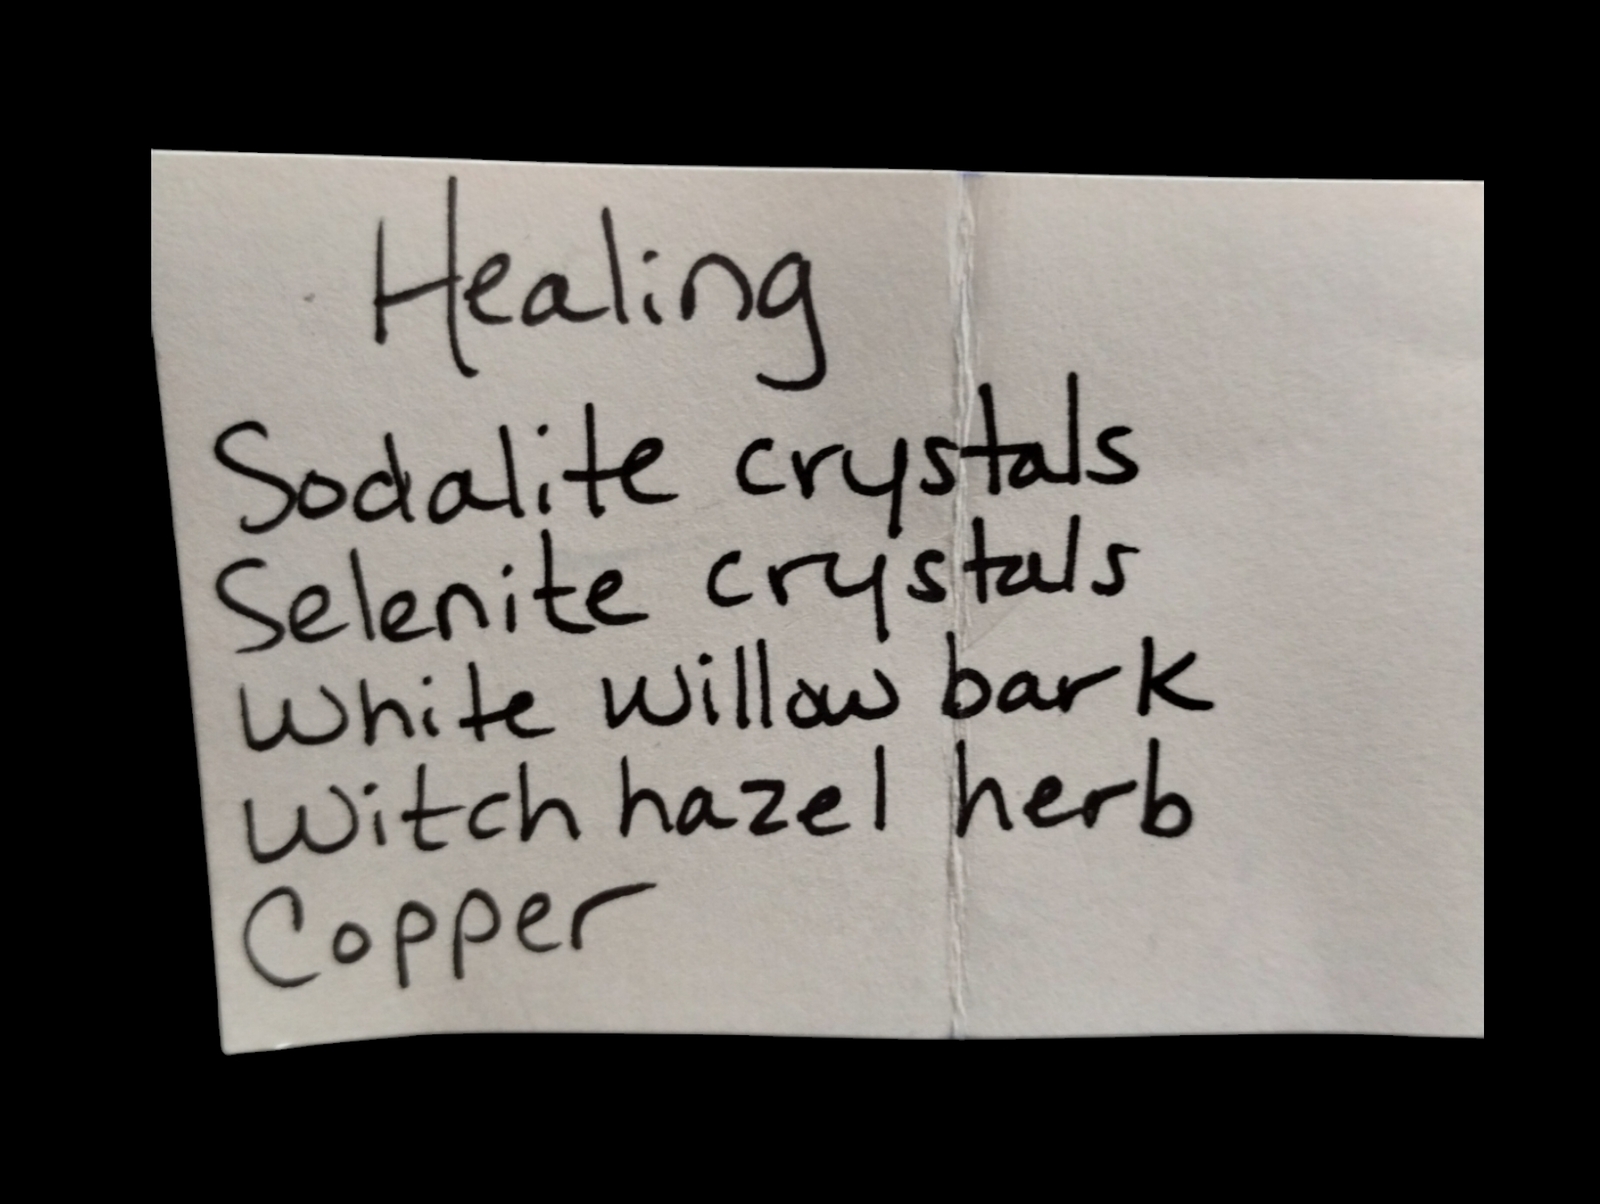 Healing
Sodalite crystals
Selenite crystals
White willow bark
Witch hazel herb
Copper